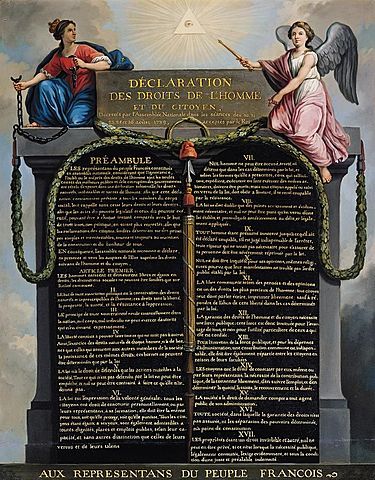 DÉCLARATION
DES DROITS DE L'HOMME
ET DU CITOYEN,
Décretés par l'Assemblée Nationale dans les séances des 20, 21
23, 24 et 26 août 1789, acceptés par le Roi
PRÉAMBULE
LES représentans du peuple François constitués
en assemblée nationale, considérant que l'ignorance,
l'oubli ou le mépris des droits de l'homme sont les seules
causes des malheurs publics et de la corruption des gouvernemens
ont résolu d'exposer dans une déclaration solemnelle, les droits
naturels, inaliénables et sacrés de l'homme; afin que cette décla-
ration, constamment présente à tous les membres du corps
social, leur rappelle sans cesse leurs droits et leurs devoirs;
afin que les actes du pouvoir législatif et ceux du pouvoir exé-
cutif, pouvant être à chaque instant comparés avec le but
de toute institution politique, en soient plus respectés; afin que
les réclamations des citoyens, fondées désormais sur des princi-
pes simples et incontestables, tournent toujours au maintien
de la constitution et du bonheur de tous.
EN conséquence, l'assemblée nationale reconnoit et déclare,
en présence et sous les auspices de l'Être suprême les droits
suivans de l'homme et du citoyen.
ARTICLE PREMIER.
LES hommes naissent et demeurent libres et égaux en
droits, les distinctions sociales ne peuvent être fondées que sur
l'utilité commune.
II.
LE but de toute association politique est la conservation des droits
naturels et imprescriptibles de l'homme; ces droits sont la liberté,
la propriété, la sureté, et la résistance à l'oppression.
III.
LE principe de toute souveraineté réside essentiellement dans
la nation, nul corps, nul individu ne peut exercer d'autorité
qui n'en émane expressément.
IV.
LA liberté consiste à pouvoir faire tout ce qui ne nuit pas à autrui.
Ainsi, l'exercice des droits naturels de chaque homme, n'a de bor-
nes que celles qui assurent aux autres membres de la société
la jouissance de ces mêmes droits; ces bornes ne peuvent être
déterminées que par la loi.
V.
LA loi n'a le droit de défendre que les actions nuisibles à la
société. Tout ce qui n'est pas défendu par la loi ne peut être
empêché, et nul ne peut être contraint à faire ce qu'elle n'or-
donne pas.
VI.
LA loi est l'expression de la volonté générale; tous les
citoyens ont droit de concourir personnellement, ou par
leurs représentans, à sa formation; elle doit être la même
pour tous, soit qu'elle protege, soit qu'elle punisse. Tous les cito-
yens étant égaux à ses yeux, sont également admissibles à
toutes dignités, places et emplois publics, selon leur ca-
pacité, et sans autres distinction que celles de leurs
vertus et de leurs talens.
VII.
Nul homme ne peut être accusé, arrêté, ni
détenu que dans les cas déterminés par la loi, et
selon les formes qu'elle a prescrites, ceux qui sollicitent,
expédient, exécutent ou font exécuter des ordres ar-
bitraires, doivent être punis; mais tout citoyen appelé ou saisi
en vertu de la loi, doit obéir à l'instant, il se rend coupable par
la résistance.
VIII.
LA loi ne doit établir que des peines strictement et évidemment né-
cessaires, et nul ne peut être puni qu'en vertu d'une
loi établie et promulguée antérieurement au délit, et légale-
ment appliquée.
IX.
TOUT homme étant présumé innocent jusqu'à ce qu'il ait
été déclaré coupable, s'il est jugé indispensable de l'arrêter,
toute rigueur qui ne serait pas nécessaire pour s'assurer de
sa personne doit être sévèrement réprimée par la loi.
X.
NUL ne doit être inquiété pour ses opinions, même reli-
gieuses pourvu que leur manifestation ne trouble pas l'ordre
public établi par la loi.
XI.
LA libre communication des pensées et des opinions
est un des droits les plus précieux de l'homme; tout citoyen
peut donc parler, écrire, imprimer librement; sauf à ré-
pondre de l'abus de cette liberté dans les cas déterminés
par la loi.
XII.
LA garantie des droits de l'homme et du citoyen nécessite
une force publique; cette force est donc instituée pour l'avan-
tage de tous, et non pour l'utilité particuliere de ceux à
qui elle est confiée.
XIII.
POUR l'entretien de la force publique, et pour les dépenses
d'administration, une contribution commune est indispen-
sable; elle doit être également répartie entre les citoyens en
raison de leurs facultés.
XIV.
LES citoyens ont le droit de constater par eux même ou
par leurs représentans, la nécessité de la contribution pub-
lique, de la consentir librement, d'en suivre l'emploi, et d'en
déterminer la quotité, l'assiette, le recouvrement et la durée.
XV.
LA société a le droit de demander compte à tout agent
public de son administration.
XVI.
TOUTE société, dans laquelle la garantie des droits n'est
pas assurée, ni la séparation des pouvoirs déterminée,
n'a point de constitution.
XVII.
LES propriétés étant un droit inviolable et sacré, nul ne
peut en être privé, si ce n'est lorsque la nécessité publique,
légalement constatée, l'exige évidemment, et sous la condi-
tion d'une juste et préalable indemnité.
AUX REPRESENTANS DU PEUPLE FRANCOIS